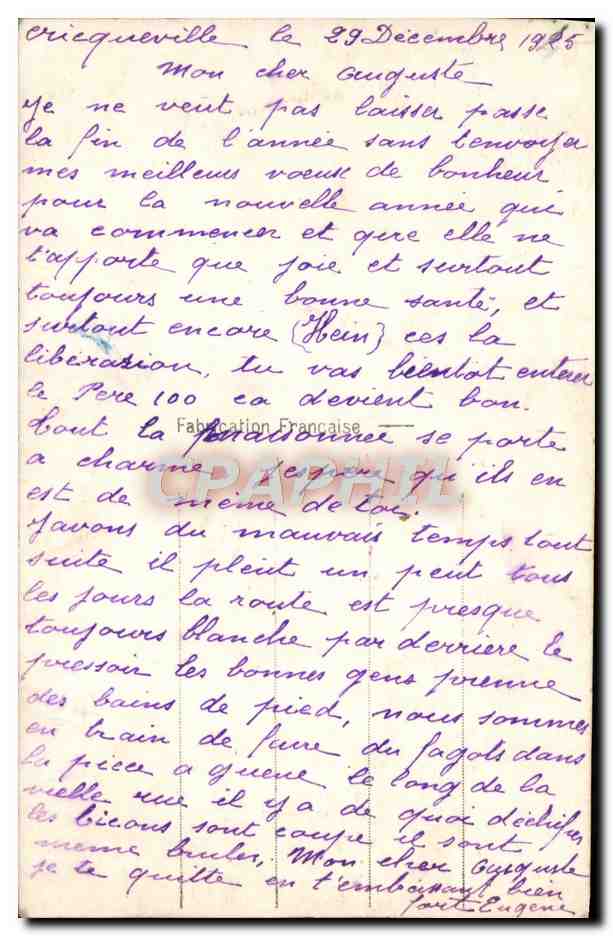 Cricqueville le 29 Décembre 1925
Mon cher Auguste
Je ne veut pas laisser passe
la fin de l'année sans t'envoyer
mes meilleurs voeux de bonheur
pour la nouvelle année qui
va commencer et que elle ne
t'apporte que joie et surtout
toujours une bonne santé, et
surtout encore {Hein} ces la
libération, tu vas bientot enterer
le Pere 100 ca devient bon.
Fabrication Française
tout la maisonnee se porte
a charme j'espere qu'ils en
CPAPHIL
est de même de toi.
J'avons du mauvais temps tout
suite il pleut un peut tous
les jours la route est presque
toujours blanche par derriere le
pressoir les bonnes gens prenne
des bains de pied, nous sommes
en train de faire du fagots dans
la piece a queue le long de la
vielle rue il y a de quoi
les sont coupe il sont
meme bruler, Mon cher Auguste
je te quitte en t'embrassant bien
fort Eugene